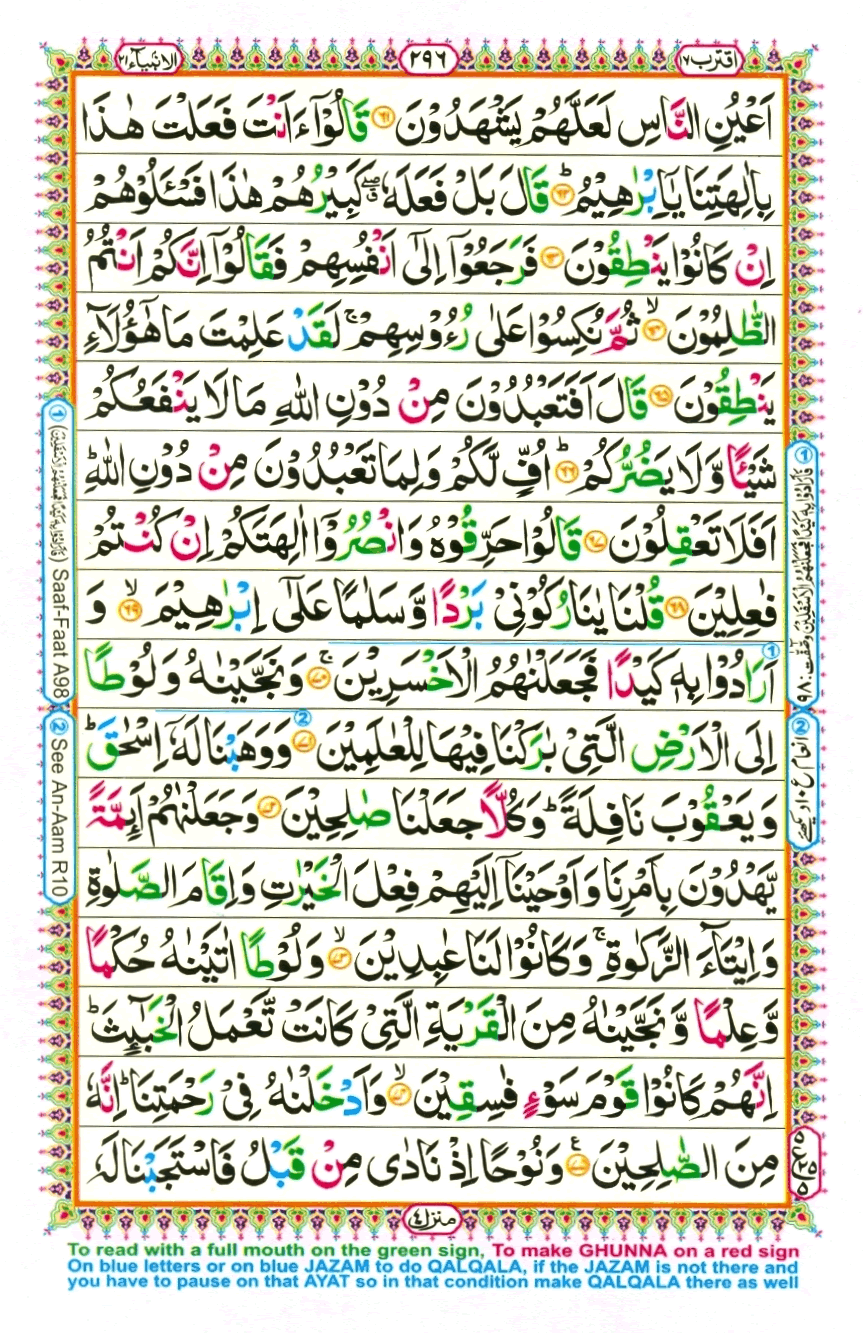 اقترب ١٧
٢٩٦
الانبیآء ٢١
اَعْیُنِ النَّاسِ لَعَلَّهُمْ یَشْهَدُوْنَ ﴿٦١﴾ قَالُوْۤا ءَاَنْتَ فَعَلْتَ هٰذَا
بِاٰلِهَتِنَا یٰۤاِبْرٰهِیْمُ ؕ﴿٦٢﴾ قَالَ بَلْ فَعَلَهٗ ۖۗ كَبِیْرُهُمْ هٰذَا فَسْـَٔلُوْهُمْ
اِنْ كَانُوْا یَنْطِقُوْنَ ﴿٦٣﴾ فَرَجَعُوْۤا اِلٰۤی اَنْفُسِهِمْ فَقَالُوْۤا اِنَّكُمْ اَنْتُمُ
الظّٰلِمُوْنَ ۙ﴿٦٤﴾ ثُمَّ نُكِسُوْا عَلٰی رُءُوْسِهِمْ ۚ لَقَدْ عَلِمْتَ مَا هٰۤؤُلَآءِ
یَنْطِقُوْنَ ﴿٦٥﴾ قَالَ اَفَتَعْبُدُوْنَ مِنْ دُوْنِ اللّٰهِ مَا لَا یَنْفَعُكُمْ
شَیْـًٔا وَّ لَا یَضُرُّكُمْ ؕ﴿٦٦﴾ اُفٍّ لَّكُمْ وَ لِمَا تَعْبُدُوْنَ مِنْ دُوْنِ اللّٰهِ ؕ
اَفَلَا تَعْقِلُوْنَ ﴿٦٧﴾ قَالُوْا حَرِّقُوْهُ وَ انْصُرُوْۤا اٰلِهَتَكُمْ اِنْ كُنْتُمْ
فٰعِلِیْنَ ﴿٦٨﴾ قُلْنَا یٰنَارُ كُوْنِیْ بَرْدًا وَّ سَلٰمًا عَلٰۤی اِبْرٰهِیْمَ ۙ﴿٦٩﴾ وَ
اَرَادُوْا بِهٖ كَیْدًا فَجَعَلْنٰهُمُ الْاَخْسَرِیْنَ ۚ﴿٧٠﴾ وَ نَجَّیْنٰهُ وَ لُوْطًا
اِلَی الْاَرْضِ الَّتِیْ بٰرَكْنَا فِیْهَا لِلْعٰلَمِیْنَ ﴿٧١﴾ وَ وَهَبْنَا لَهٗۤ اِسْحٰقَ ؕ
وَ یَعْقُوْبَ نَافِلَةً ؕ وَ كُلًّا جَعَلْنَا صٰلِحِیْنَ ﴿٧٢﴾ وَ جَعَلْنٰهُمْ اَىِٕمَّةً
یَّهْدُوْنَ بِاَمْرِنَا وَ اَوْحَیْنَاۤ اِلَیْهِمْ فِعْلَ الْخَیْرٰتِ وَ اِقَامَ الصَّلٰوةِ
وَ اِیْتَآءَ الزَّكٰوةِ ۚ وَ كَانُوْا لَنَا عٰبِدِیْنَ ۙ﴿٧٣﴾ وَ لُوْطًا اٰتَیْنٰهُ حُكْمًا
وَّ عِلْمًا وَّ نَجَّیْنٰهُ مِنَ الْقَرْیَةِ الَّتِیْ كَانَتْ تَّعْمَلُ الْخَبٰٓىِٕثَ ؕ
اِنَّهُمْ كَانُوْا قَوْمَ سَوْءٍ فٰسِقِیْنَ ۙ﴿٧٤﴾ وَ اَدْخَلْنٰهُ فِیْ رَحْمَتِنَا ؕ اِنَّهٗ
مِنَ الصّٰلِحِیْنَ ﴿٧٥﴾ وَ نُوْحًا اِذْ نَادٰی مِنْ قَبْلُ فَاسْتَجَبْنَا لَهٗ
Saaf-Faat A98
See An-Aam R10
منزل ٤
To read with a full mouth on the green sign, To make GHUNNA on a red sign
On blue letters or on blue JAZAM to do QALQALA, if the JAZAM is not there and
you have to pause on that AYAT so in that condition make QALQALA there as well